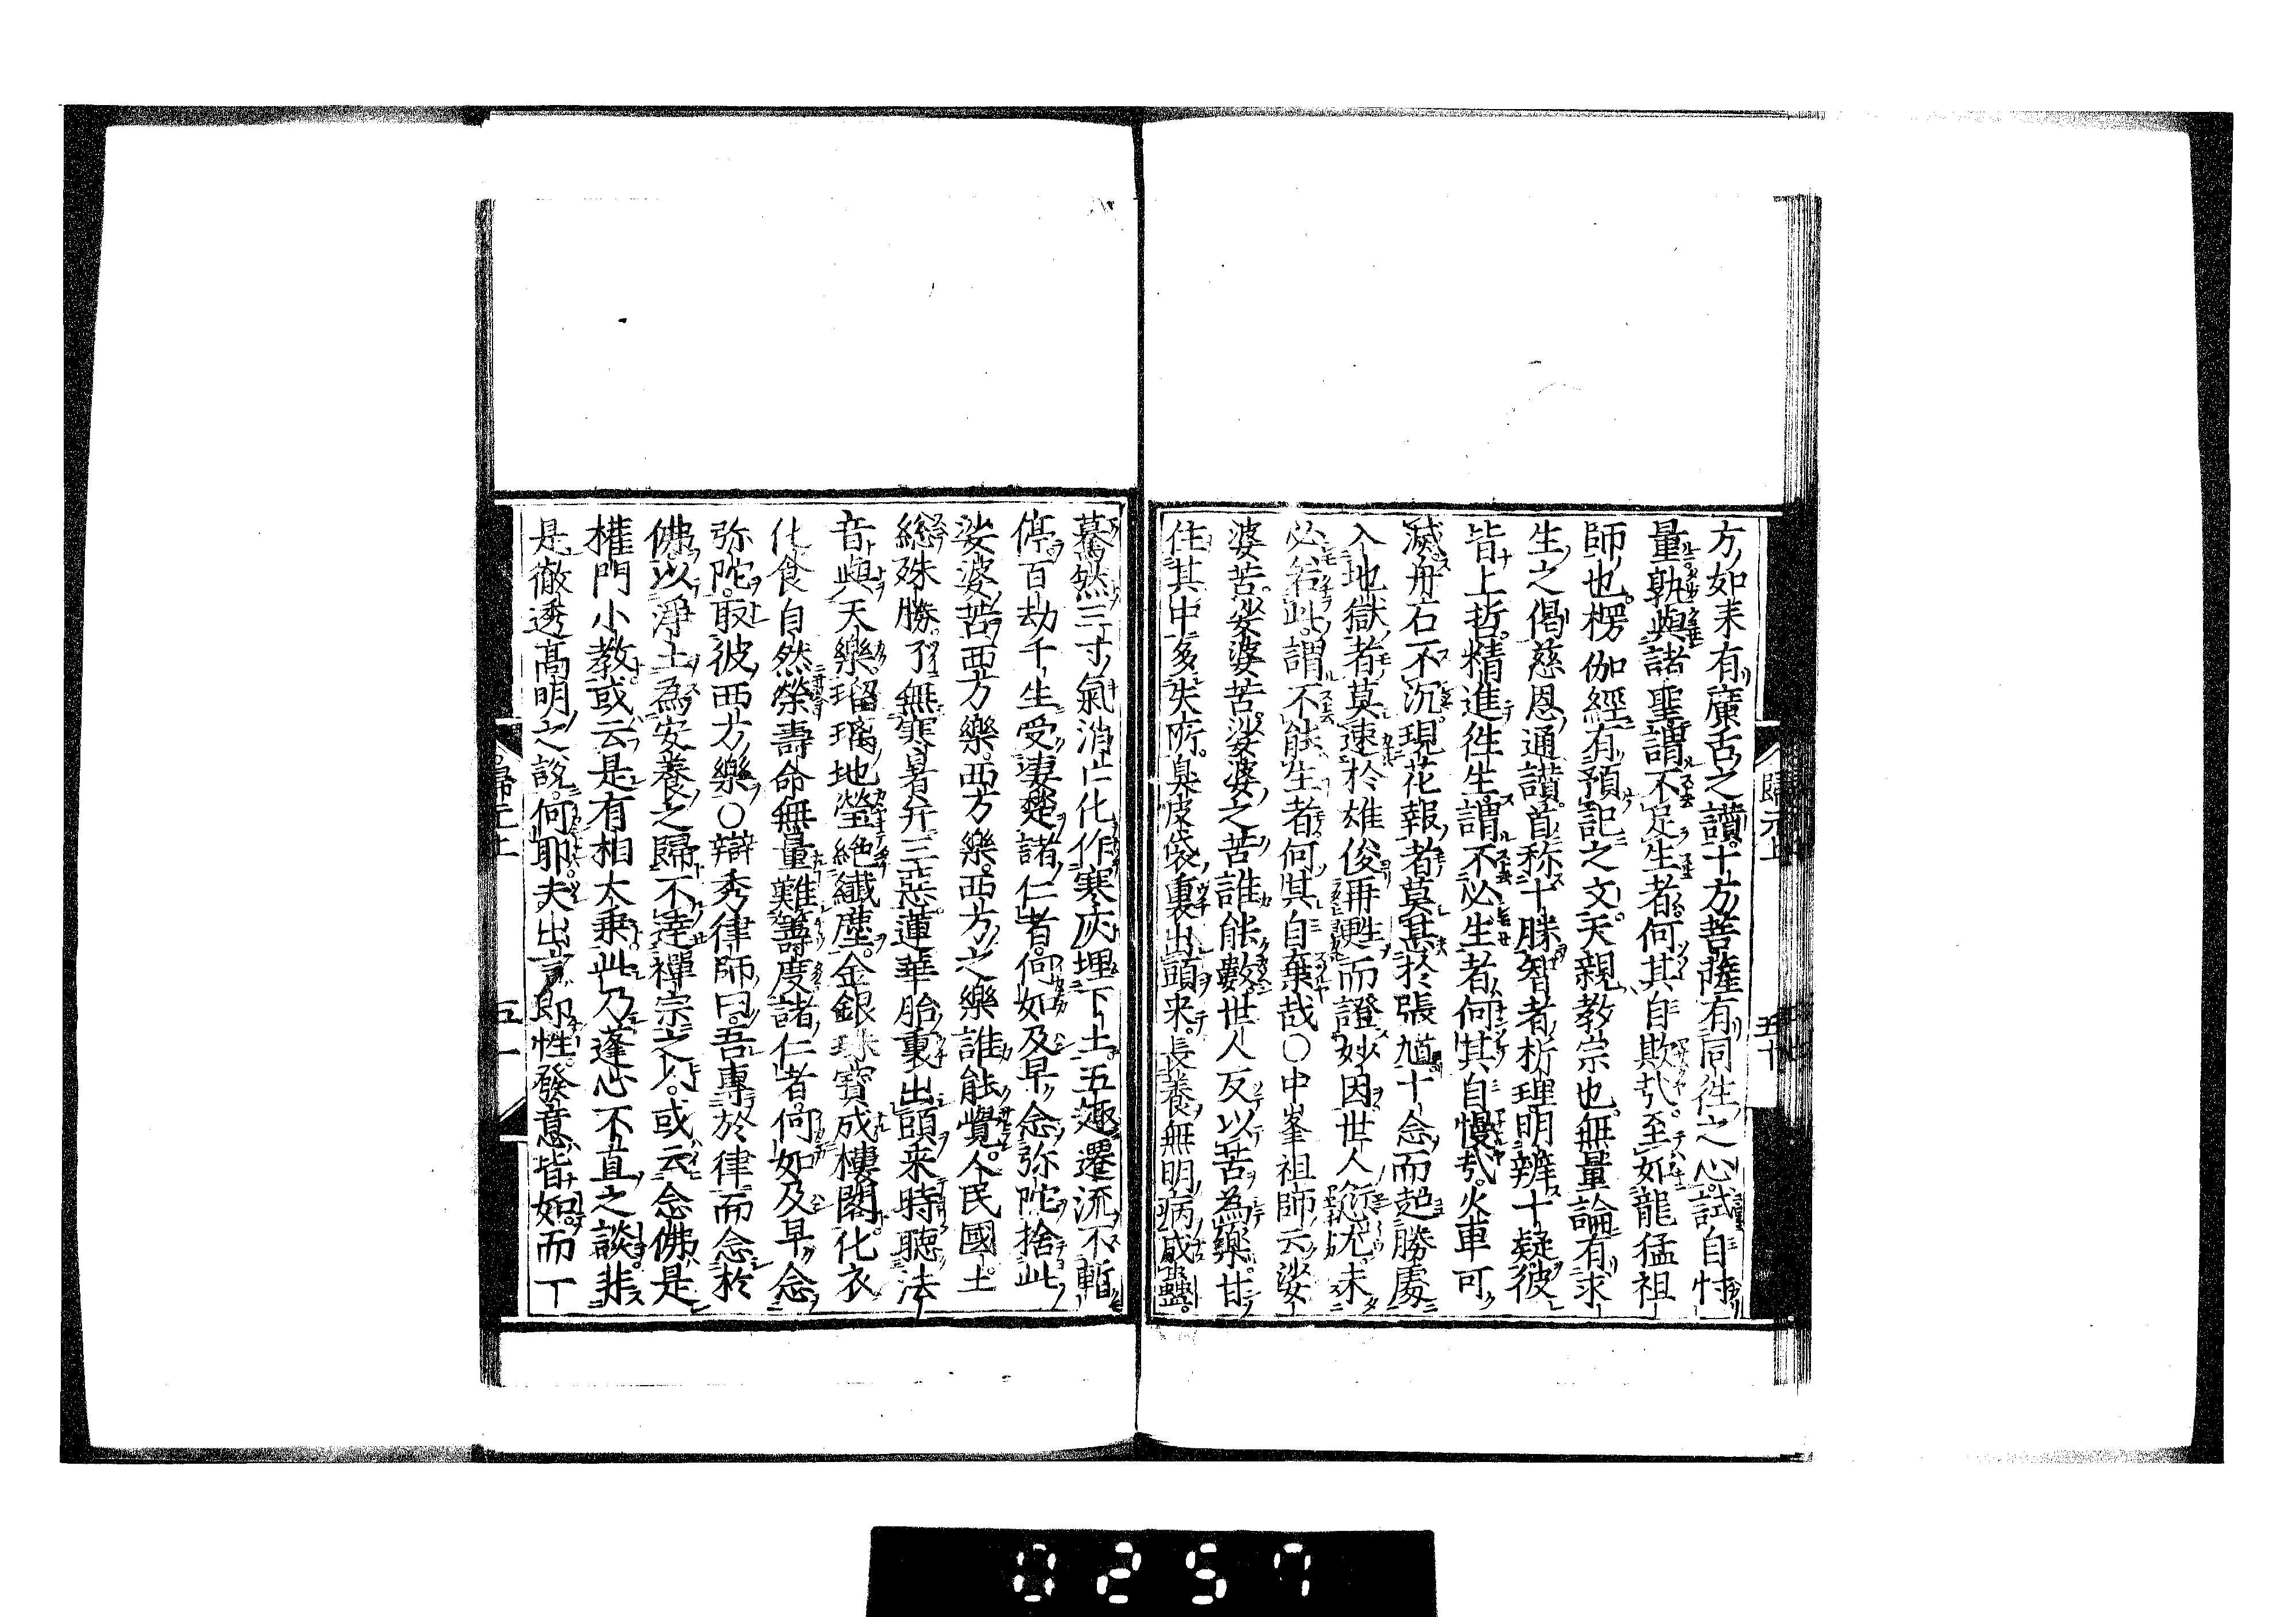 方如来有廣舌之讃十方菩薩有同徃之心試自忖
量孰與諸聖謂不足生者何其自欺㢤至如龍猛祖
師也楞伽經有預記之文天親教宗也無量論有求
生之偈慈恩通讃首称十勝智者析理明辨十疑彼
皆上哲精進徃生謂不必生者何其自慢㢤火車可
滅舟石不沉現花報者莫甚於張馗十念而超勝處
入地獄者莫速於雄俊再甦而證妙因世人愆尤未
必若此謂不能生者何其自棄哉〇中峯祖師云娑
婆苦娑婆苦娑婆之苦誰能數世人反以苦為樂甘
住其中多失所臭皮袋裏出頭来長養無明病成蠱
驀然三寸氣消亡化作寒灰埋下土五趣遷流不暫
停百劫千生受凄楚諸仁者何如及早念弥陀捨此
娑婆苦西方樂西方樂西方之樂誰能覺人民國土
総殊勝了無寒暑并三惡蓮華胎裏出頭来時聴法
音與天樂瑠璃地瑩絶纎塵金銀珠寳成樓閣化衣
化食自然榮壽命無量難籌度諸仁者何如及早念
弥陀取彼西方樂〇辯秀律師曰吾專於律而念於
佛以淨土為安養之歸不達禪宗之人或云念佛是
權門小教或云是有相大乗此乃蓬心不直之談非
是徹透高明之說何耶夫出言即性發意皆如而丁
歸元上
五十
歸元上
五十一
0257